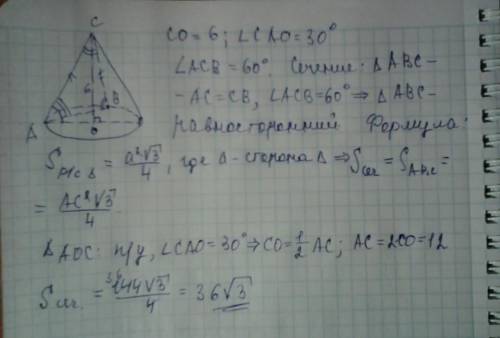 C
CO = 6 ; ∠CAO = 30°
∠ACB = 60°. Сечение: ΔABC -
- AC = CB, ∠ACB = 60° ⇒ ΔABC -
равносторонний Формула:
6
A
B
O
S = a²√3/4, где a - сторона Δ ⇒ Sсеч = SABC =
= AC²√3/4
ΔAOC: п/у, ∠CAO = 30° ⇒ CO = 1/2 AC; AC = 2CO = 12
Sсеч. = 144√3/4 = 36√3